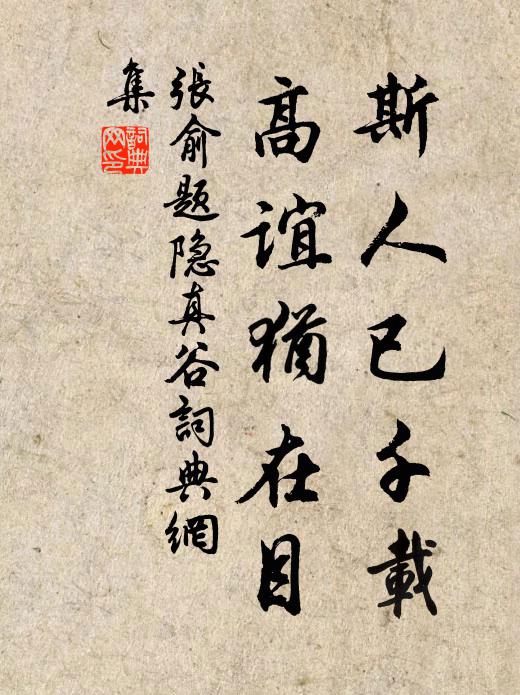 斯人已千載
高誼猶在目
張俞题隐真谷詞典網
集
詞典
网印